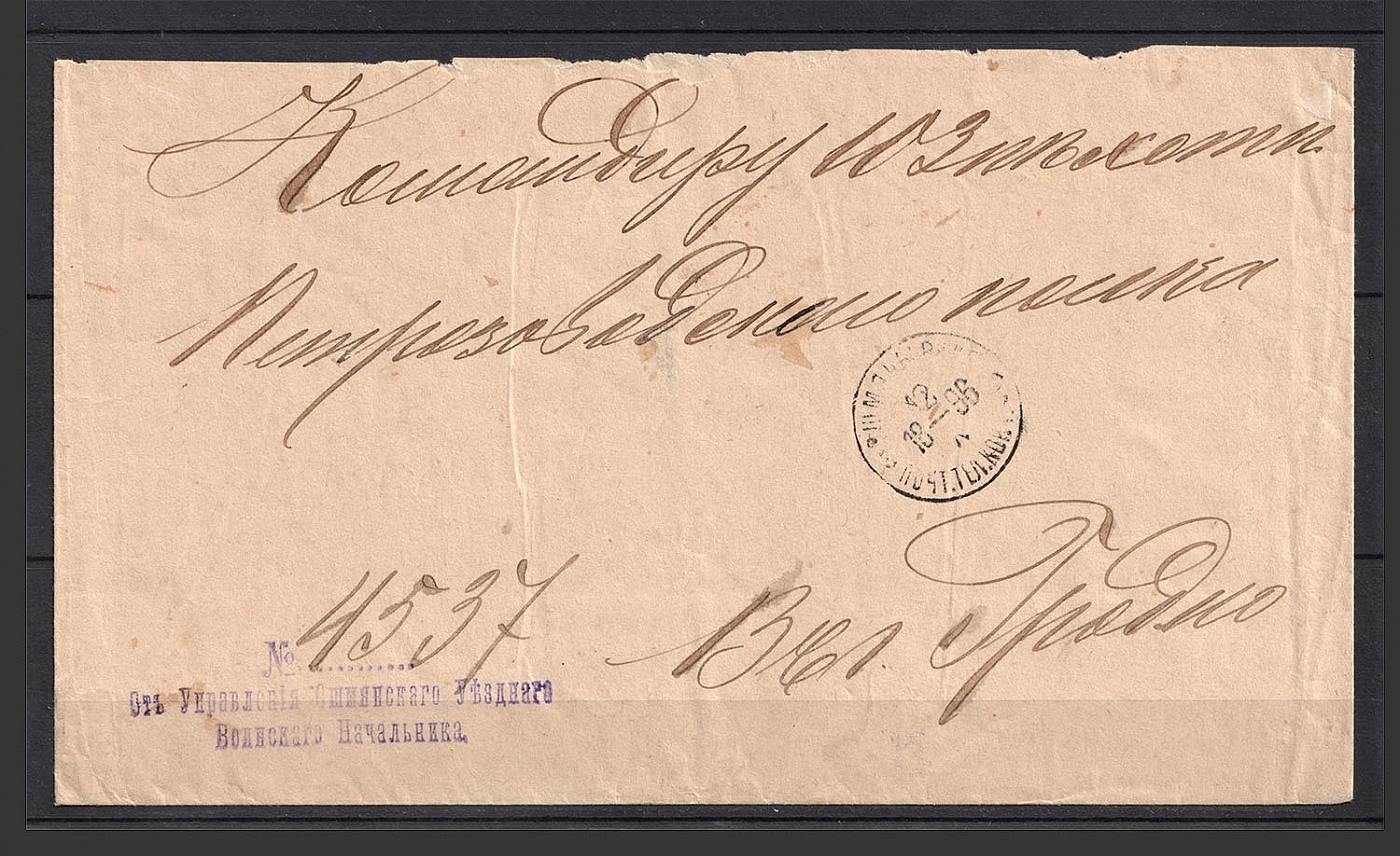 Командиру 103 пѣхотн.
Петрозаводскаго полка
12
18 – 96
4537
Въ г. Гродно
№ ............
Отъ Управленія Ошмянскаго Уѣзднаго
Воинскаго Начальника.